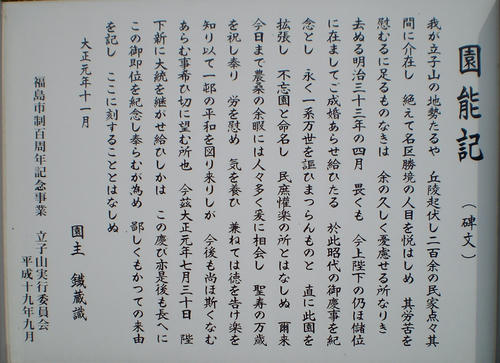 園能記
（碑文）
我が立子山の地勢たるや　丘陵起伏し二百余の民家点々其
間に介在し　絶えて名区勝境の人目を悦はしめ　其労苦を
慰むるに足るものなきは　余の久しく憂慮せる所なりき
去ぬる明治三十三年の四月　畏くも　今上陛下の仍ほ儲位
に在ましてご成婚あらせ給ひたる　於此昭代の御慶事を紀
念とし　永く一系万世を謳ひまつらんものと　直に此園を
拡張し　不忘園と命名し　民庶懽楽の所とはなしぬ　爾来
今日まで農桑の余暇には人々多く爰に相会し　聖寿の万歳
を祝し奉り　労を慰め　気を養ひ　兼ねては徳を告け楽を
知り以て一邨の平和を図り来りしが　今後も尚ほ斯くなむ
あらむ事希ひ切に望む所也　今茲大正元年七月三十日　陛
下新に大統を継がせ給ひしかは　この慶び亦是後も長へに
この御即位を紀念し奉らむが為め　鄙しくもかつての来由
を記し　ここに刻することとはなしぬ
大正元年十一月
園主　鐵蔵識
福島市制百周年記念事業　立子山実行委員会
平成十九年九月